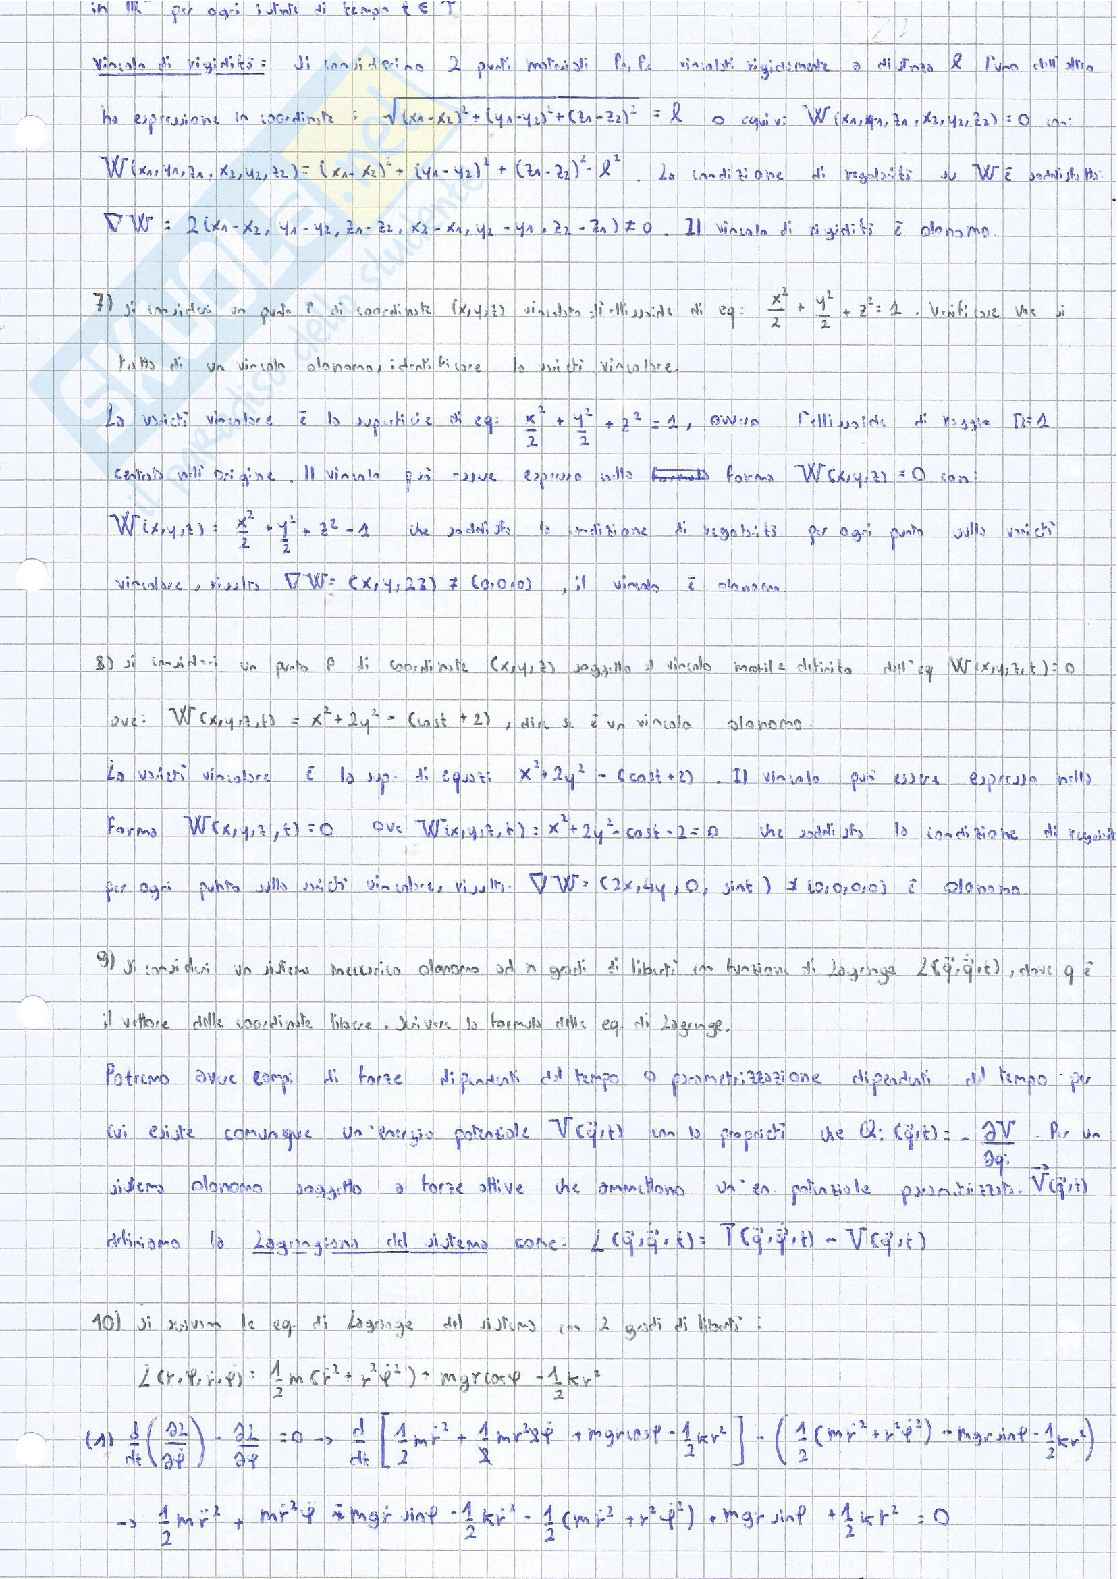 in ℝ per ogni istante di tempo t ∈ T
Vincolo di rigidità: si considerino 2 punti materiali P₁, P₂ vincolati rigidamente a distanza l l'uno dall'altro
ha espressione in coordinate: √((x₁-x₂)²+(y₁-y₂)²+(z₁-z₂)²) = l o equiv: W(x₁,y₁,z₁,x₂,y₂,z₂)=0 con:
W(x₁,y₁,z₁,x₂,y₂,z₂)=(x₁-x₂)²+(y₁-y₂)²+(z₁-z₂)²-l². La condizione di regolarità su W è soddisfatta:
∇W = 2(x₁-x₂, y₁-y₂, z₁-z₂, x₂-x₁, y₂-y₁, z₂-z₁)≠0. Il vincolo di rigidità è olonomo.
7) si consideri un punto P di coordinate (x,y,z) vincolato all'ellissoide di eq: x²/2 + y²/2 + z²=1. Verificare che si
tratta di un vincolo olonomo, identificare la varietà vincolare.
La varietà vincolare è la superficie di eq: x²/2 + y²/2 + z² = 1, ovvero l'ellissoide di raggio R=1
centrato nell'origine. Il vincolo può essere espresso nella forma W(x,y,z)=0 con:
W(x,y,z)= x²/2 + y²/2 + z²-1 che soddisfa la condizione di regolarità per ogni punto sulla varietà
vincolare, risulta ∇W=(x,y,2z)≠(0,0,0), il vincolo è olonomo
8) si consideri un punto P di coordinate (x,y,z) soggetto al vincolo mobile definito dall'eq W(x,y,z,t)=0
ove: W(x,y,z,t) = x²+2y²-(cost+2), dire se è un vincolo olonomo.
La varietà vincolare è la sup. di equaz: x²+2y²-(cost+2). Il vincolo può essere espresso nella
forma W(x,y,z,t)=0 ove W(x,y,z,t)=x²+2y²-cost-2=0 che soddisfa la condizione di
per ogni punto sulla varietà vincolare, risulta ∇W=(2x,4y,0,sint)≠(0,0,0,0) è olonomo.
9) si consideri un sistema meccanico olonomo ad n gradi di libertà con funzione di Lagrange L(q⃗,q̇⃗,t), dove q è
il vettore delle coordinate libere. Scrivere la formula delle eq. di Lagrange.
Potremo avere campi di forze dipendenti dal tempo o parametrizzazione dipendenti dal tempo per
cui esiste comunque un'energia potenziale V(q⃗,t) con la proprietà che Qi(q⃗,t)= - ∂V/∂qi. Per un
sistema olonomo soggetto a forze attive che ammettono un'en. potenziale parametrizzata V(q⃗,t)
definiamo la Lagrangiana del sistema come: L(q⃗,q̇⃗,t)= T(q⃗,q̇⃗,t) - V(q⃗,t)
10) si scrivano le eq. di Lagrange del sistema con 2 gradi di libertà:
L(r,φ,ṙ,φ̇)= 1/2 m(ṙ²+r²φ̇²)+mgrcosφ-1/2kr²
(1) d/dt(∂L/∂φ̇) - ∂L/∂φ =0 → d/dt[1/2mṙ²+1/2mr²2φ̇+mgrcosφ-1/2kr²] - (1/2(mṙ²+r²φ̇²)-mgrsinφ-1/2kr²)
→ 1/2mṙ² + mṙ²φ̇ -mgrsinφ-1/2kr²-1/2(mṙ²+r²φ̇²)+mgrsinφ+1/2kr²=0
SKUOLA.net
il paradiso dello studente